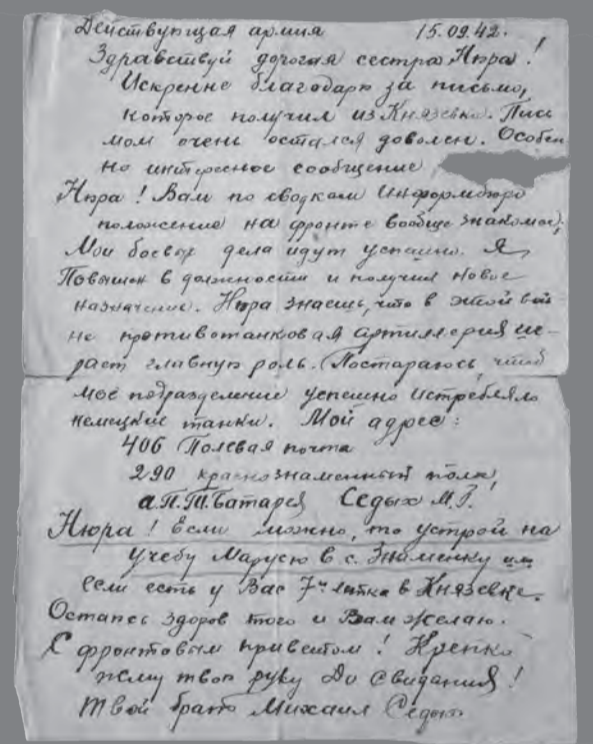 Действующая армия 15.09.42.
Здравствуй дорогая сестра Нюра!
Искренне благодарю за письмо,
которое получил из Князевки. Пись
мом очень остался доволен. Особен
но интересное сообщение
Нюра! Вам по сводкам Информбюро
положение на фронте вообще знакомое,
Мои боевые дела идут успешно. Я,
Повышен в должности и получил новое
назначение. Нюра знаешь, что в этой вой-
не противотанковая артиллерия иг-
рает главную роль. Постараюсь, чтоб
моё подразделение успешно истребляло
немецкие танки. Мой адрес:
406 Полевая почта
290 краснознаменный полк,
а.П.Т.Батарея Седых М.Г.
Нюра! Если можно, то устрой на
учебу Марусю в с. Знаменку или
если есть у Вас 7ми летка в Князевке.
Остаюсь здоров того и Вам желаю.
С фронтовым приветом! Крепко
жму твою руку До свидания!
Твой брат Михаил Седых.